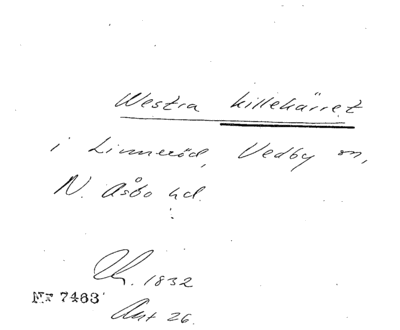 Westra Killekärret
i Linneröd, Vedby sn,
N. Åsbo hd.
Ch. 1832
Akt 26.
Nr 7463